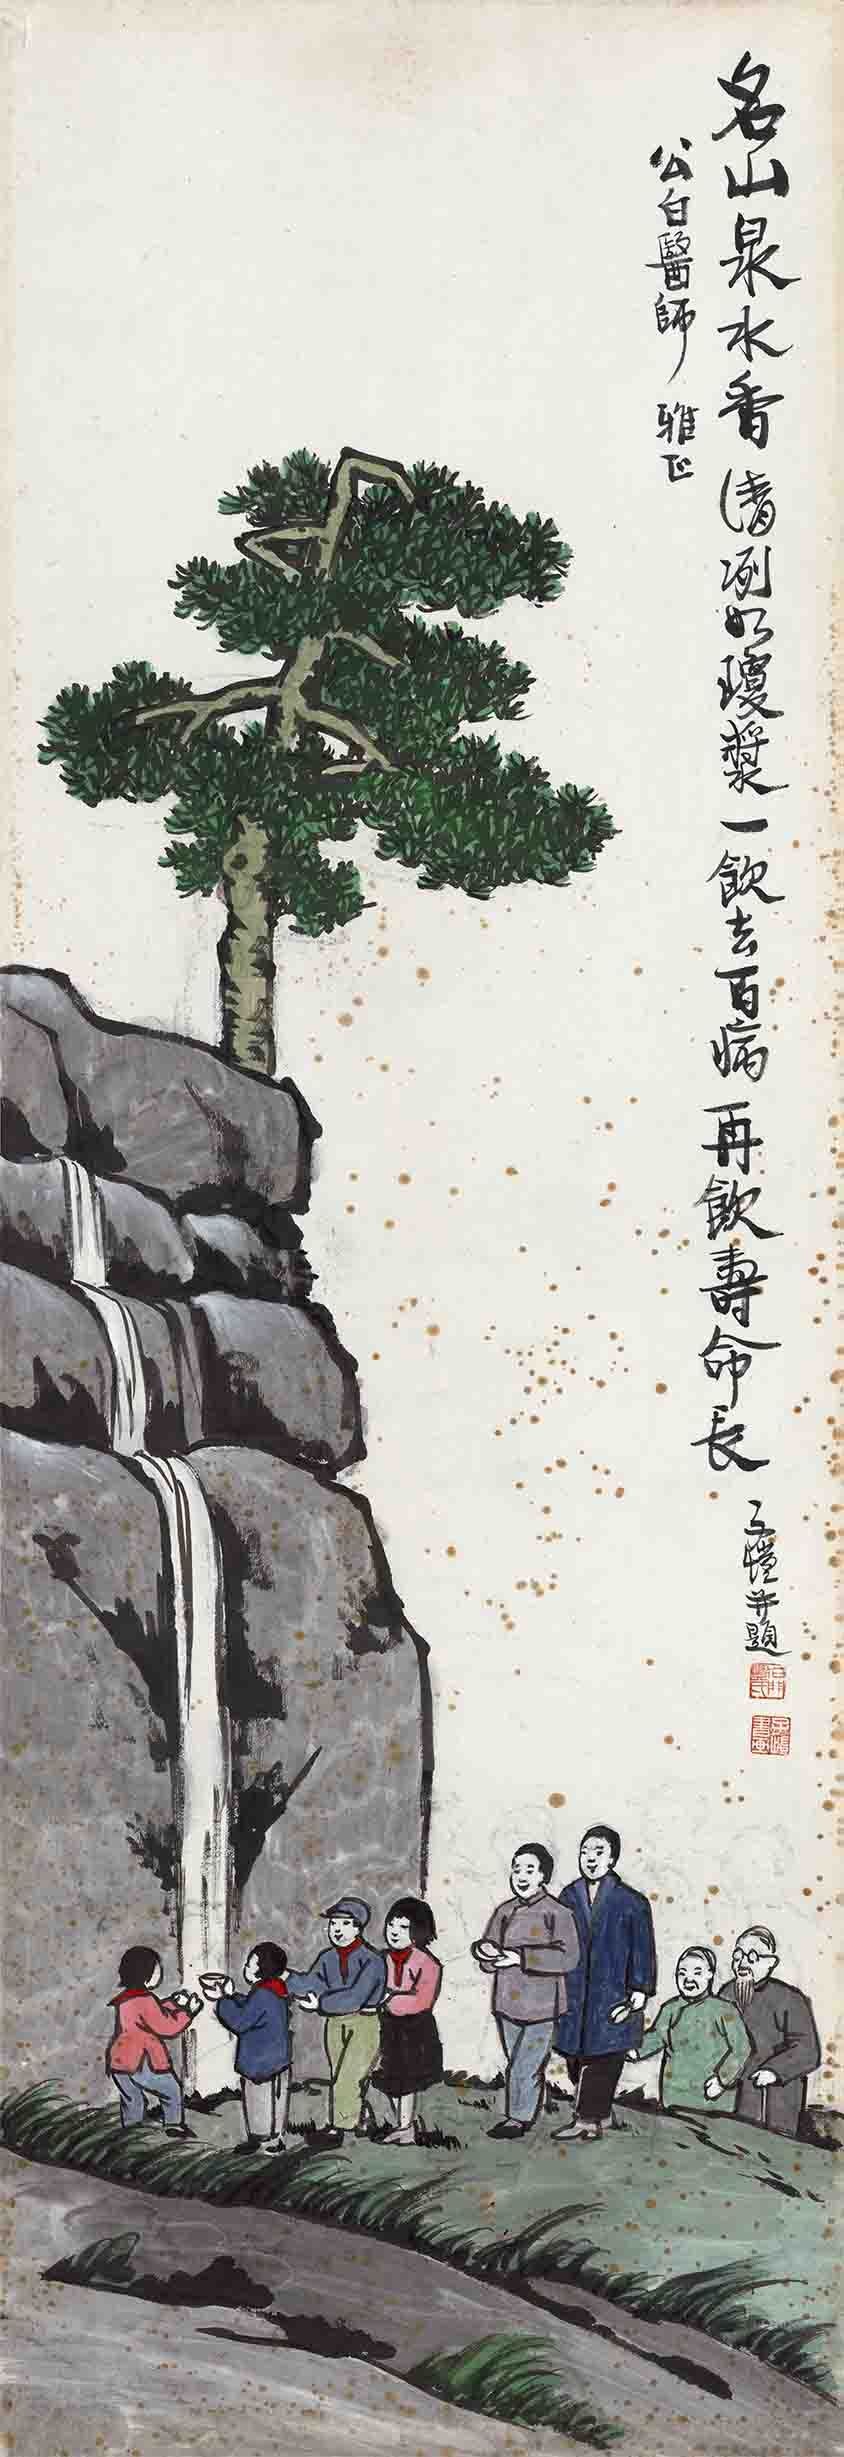 名山泉水香清冽如瓊漿一飲去百病再飲壽命長
子愷并題
公白醫師 雅正
石門豐氏